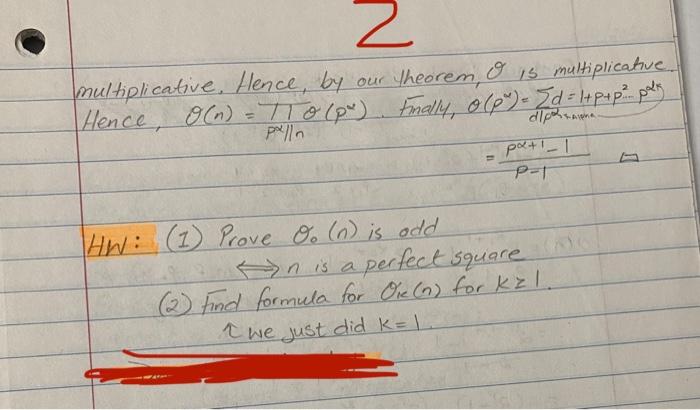 2
multiplicative. Hence, by our theorem, σ is multiplicative.
Hence, σ(n) = ∏ σ(p^α). Finally, σ(p^α) = ∑d = 1+p+p²... p^α
p^α||n d|p^α
= p^α+1 - 1
p-1 □
HW: (1) Prove σ₀(n) is odd
⟺ n is a perfect square
(2) Find formula for σₖ(n) for k≥1.
↑ we just did k=1.